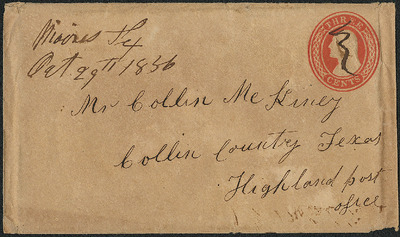 Moores Ky
Oct 29th 1856
THREE
CENTS
Mr Collin McKiney
Collin Country Texas
Highland post
office